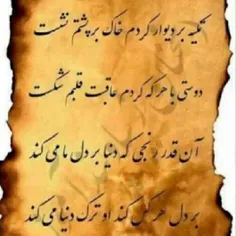 تکیه بر دیوار کردم خاک بر پشتم نشست
دوستی با هر که کردم عاقبت قلبم شکست
آن قدر رنجی که دنیا بر دل ما می کند
بر دل هر کس کند او ترک دنیا می کند